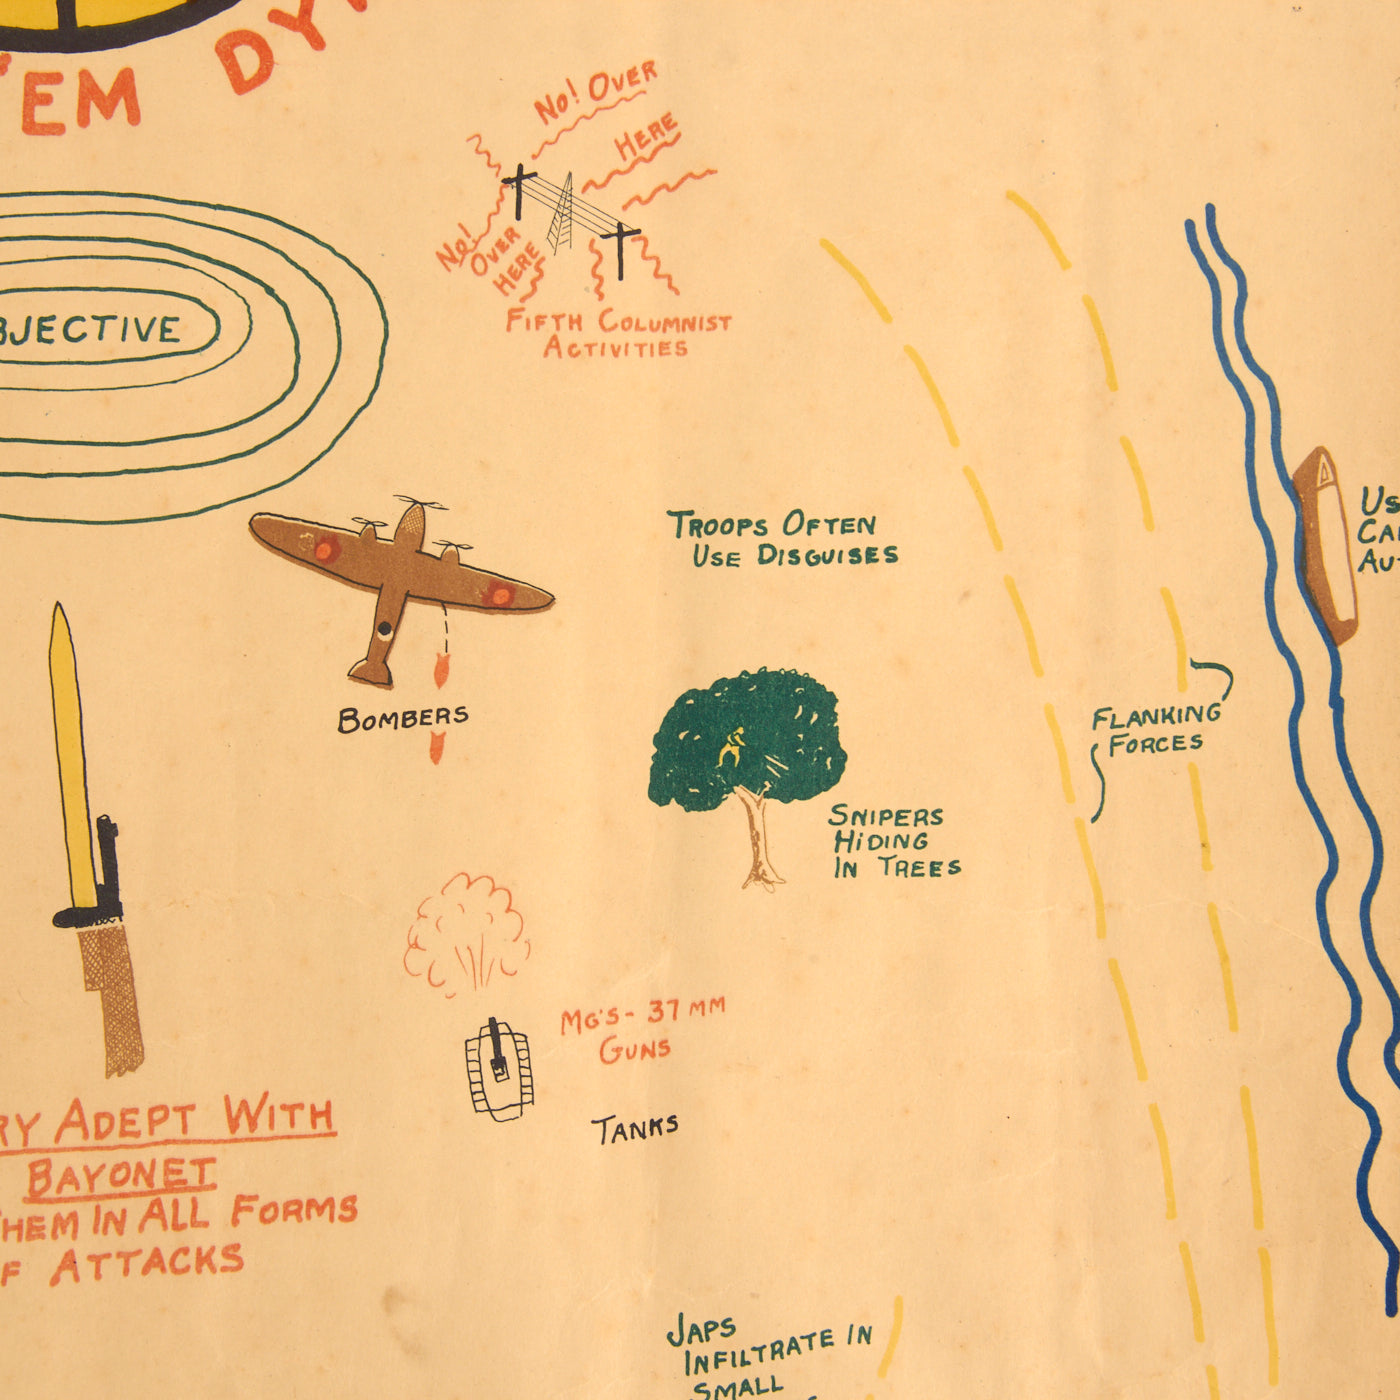 'EM
No! OVER
HERE
No!
OVER
HERE
FIFTH COLUMNIST
ACTIVITIES
TROOPS OFTEN
USE DISGUISES
BOMBERS
FLANKING
FORCES
SNIPERS
HiDING
IN TREES
MG'S - 37 MM
GUNS
TANKS
ADEPT WITH
BAYONET
THEM IN ALL FORMS
ATTACKS
JAPS
INFILTRATE IN
SMALL